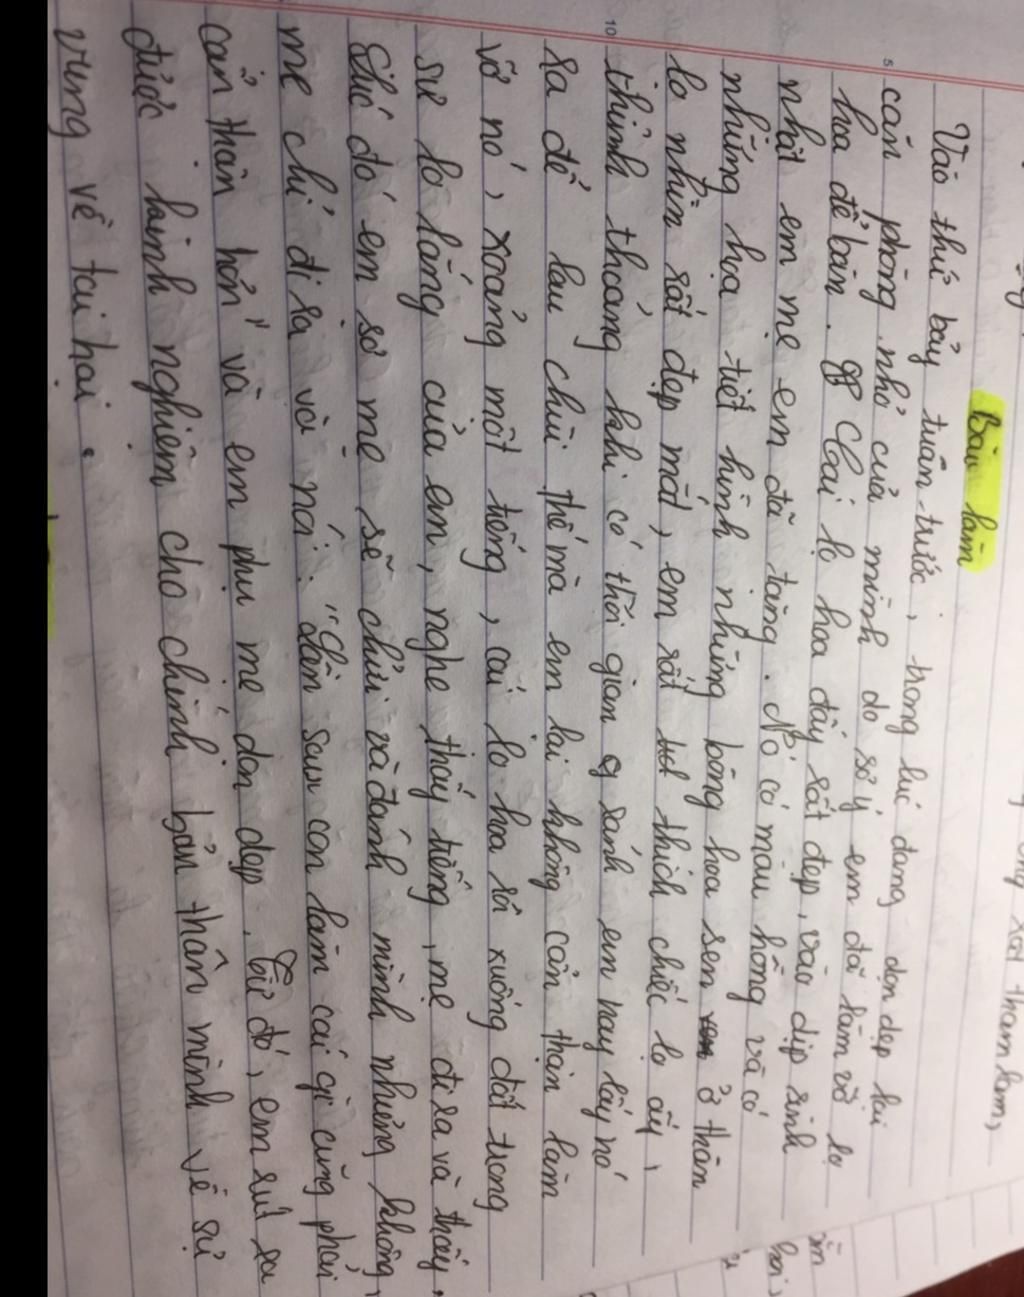 Bài làm
Vào thứ bảy tuần trước, trong lúc đang dọn dẹp lại
căn phòng nhỏ của mình do sơ ý em đã làm vỡ lọ
hoa để bàn. Cái lọ hoa đấy rất đẹp, vào dịp sinh
nhật em mẹ em đã tặng. Nó có màu hồng và có
những họa tiết hình những bông hoa sen ở thân
lọ nhìn rất đẹp mắt, em rất thích chiếc lọ ấy,
thỉnh thoảng khi có thời gian rảnh em hay lấy nó
ra để lau chùi thế mà em lại không cẩn thận làm
vỡ nó, xoảng một tiếng, cái lọ hoa rơi xuống đất trong
sự lo lắng của em, nghe thấy tiếng, mẹ đi ra và thấy,
lúc đó em sợ mẹ sẽ chửi và đánh mình nhưng không,
mẹ chỉ đi ra và nói: "Lần sau con làm cái gì cũng phải
cẩn thận hơn" và em phụ mẹ dọn dẹp. Từ đó, em rút ra
được kinh nghiệm cho chính bản thân mình về sự
vụng về tai hại.
5
10